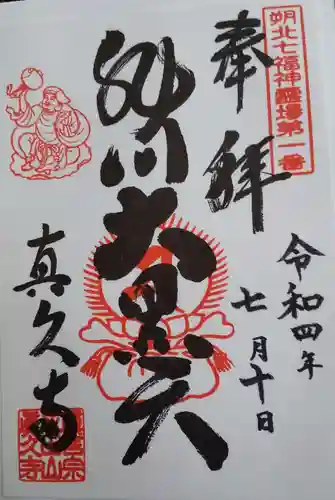 朔北七福神靈場第一番
奉拝
令和四年
七月十日
旭川大黒天
真久寺
真久寺